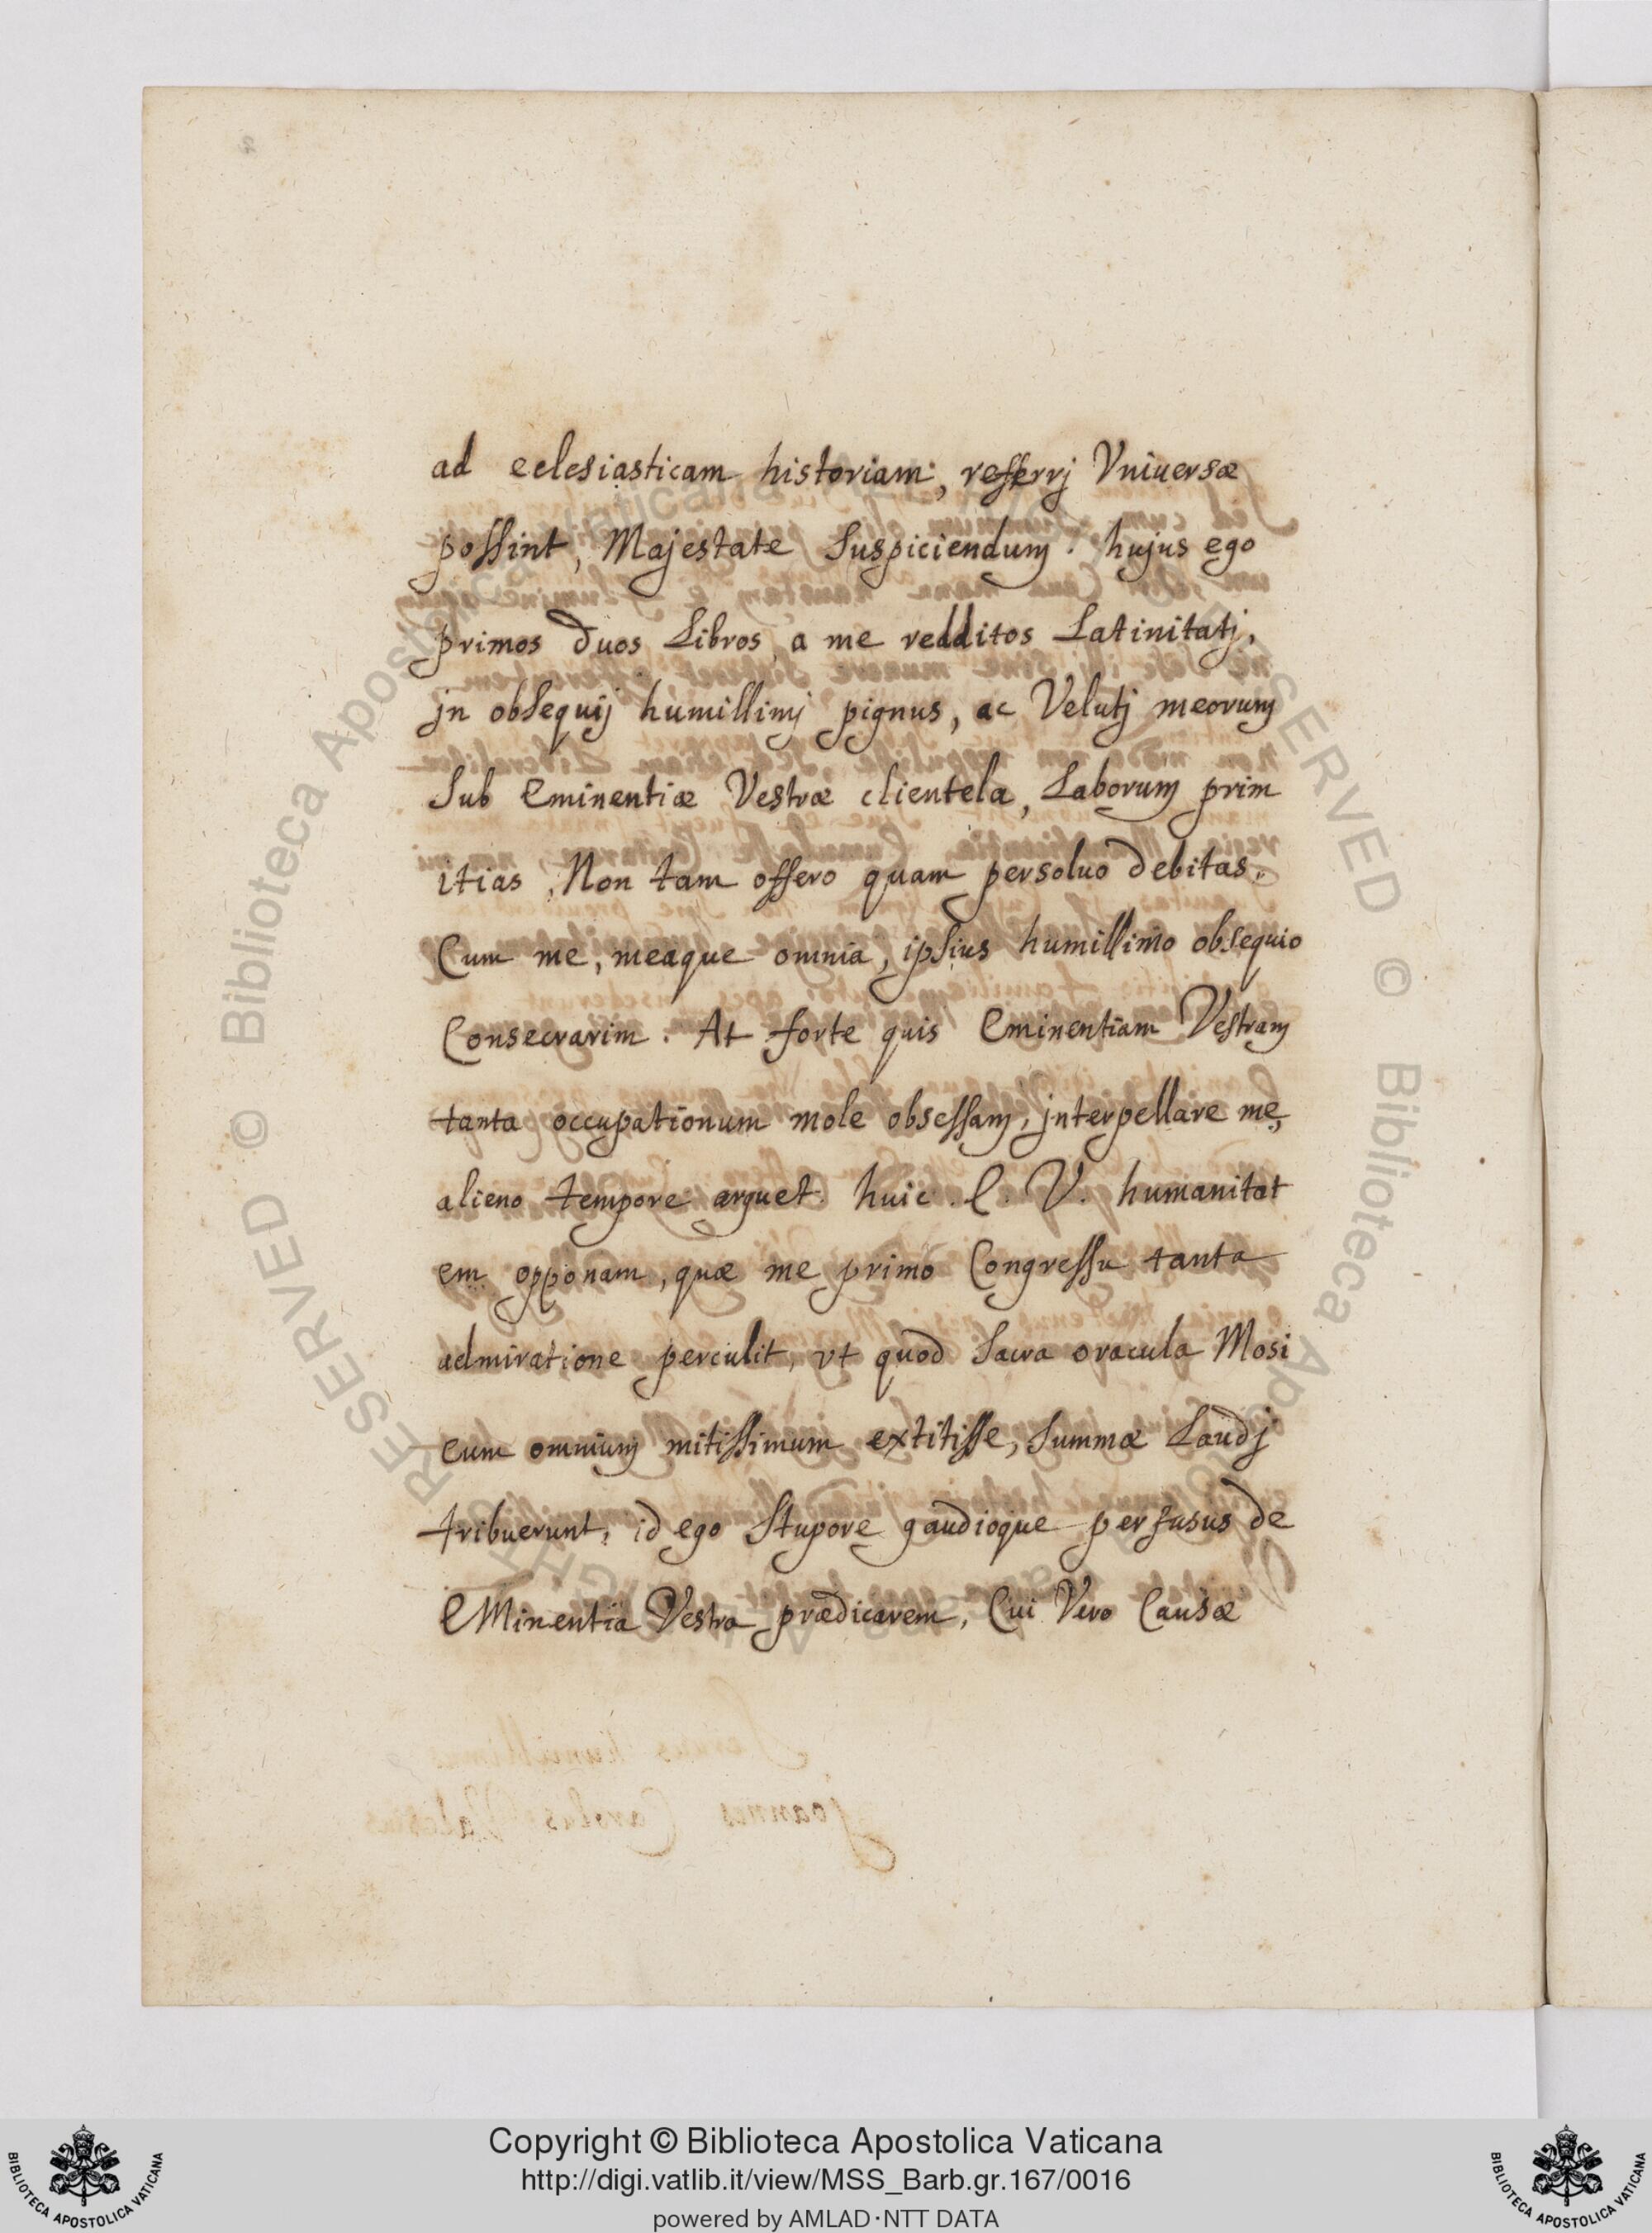 ad eclesiasticam historiam, refferrj Vniuersæ
possint, Majestate suspiciendum. hujus ego
primos duos Libros a me redditos Latinitatj,
jn obsequij humillimj pignus, ac Velutj meorum
sub Eminentiæ Vestræ clientela, Laborum prim
itias, Non tam offero quam persoluo debitas.
Cum me, meaque omnia, ipsius humillimo obsequio
Consecrarim. At forte quis Eminentiam Vestram
tanta occupationum mole obsessam, jnterpellare me,
alieno tempore arguet. huic. E. V. humanitat
em opponam, quæ me primo Congressu tanta
admiratione perculit, vt quod sacra oracula Mosi
eum omnium mitissimum extitisse, summæ Laudj
tribuerunt, id ego stupore gaudioque perfusus de
EMinentia Vestra prædicarem, Cui Vero Causæ
Copyright © Biblioteca Apostolica Vaticana
http://digi.vatlib.it/view/MSS_Barb.gr.167/0016
powered by AMLAD·NTT DATA
BIBLIOTECA APOSTOLICA VATICANA
BIBLIOTECA APOSTOLICA VATICANA